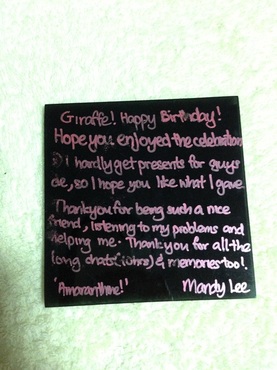 Giraffe! Happy Birthday!
Hope you enjoyed the celebration
:) I hardly get presents for guys
de, so I hope you like what I gave.
Thankyou for being such a nice
friend, listening to my problems and
helping me. Thankyou for all the
long chats & memories too!
'Amaranthine!' Mandy Lee